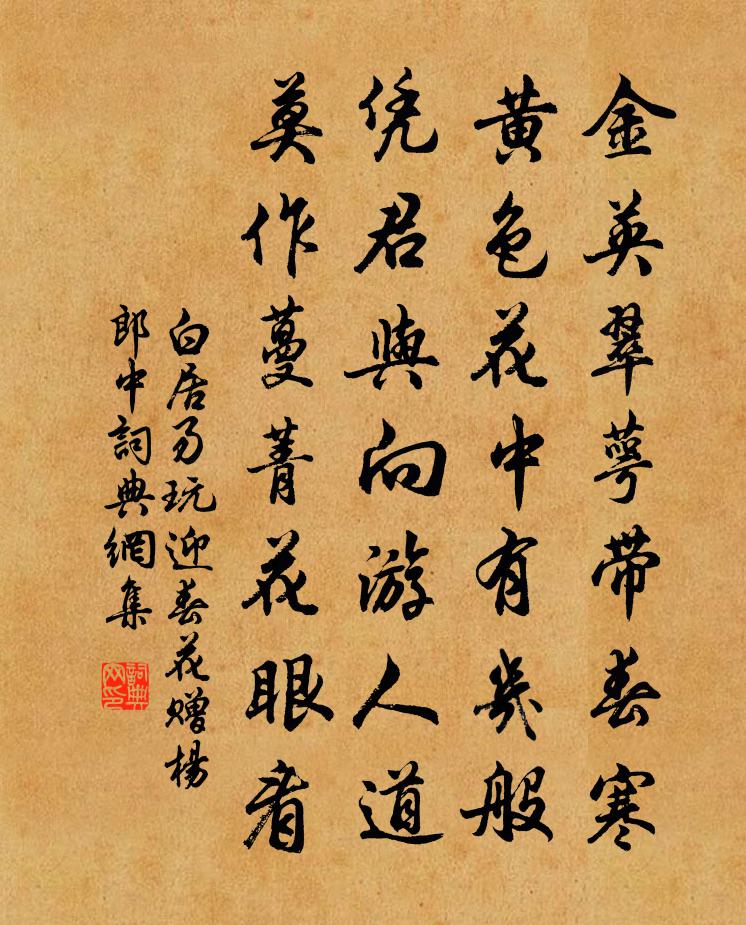 金英翠萼带春寒
黄色花中有幾般
凭君與向游人道
莫作蔓菁花眼看
白居易玩迎春花赠楊
郎中詞典網集
詞典网印